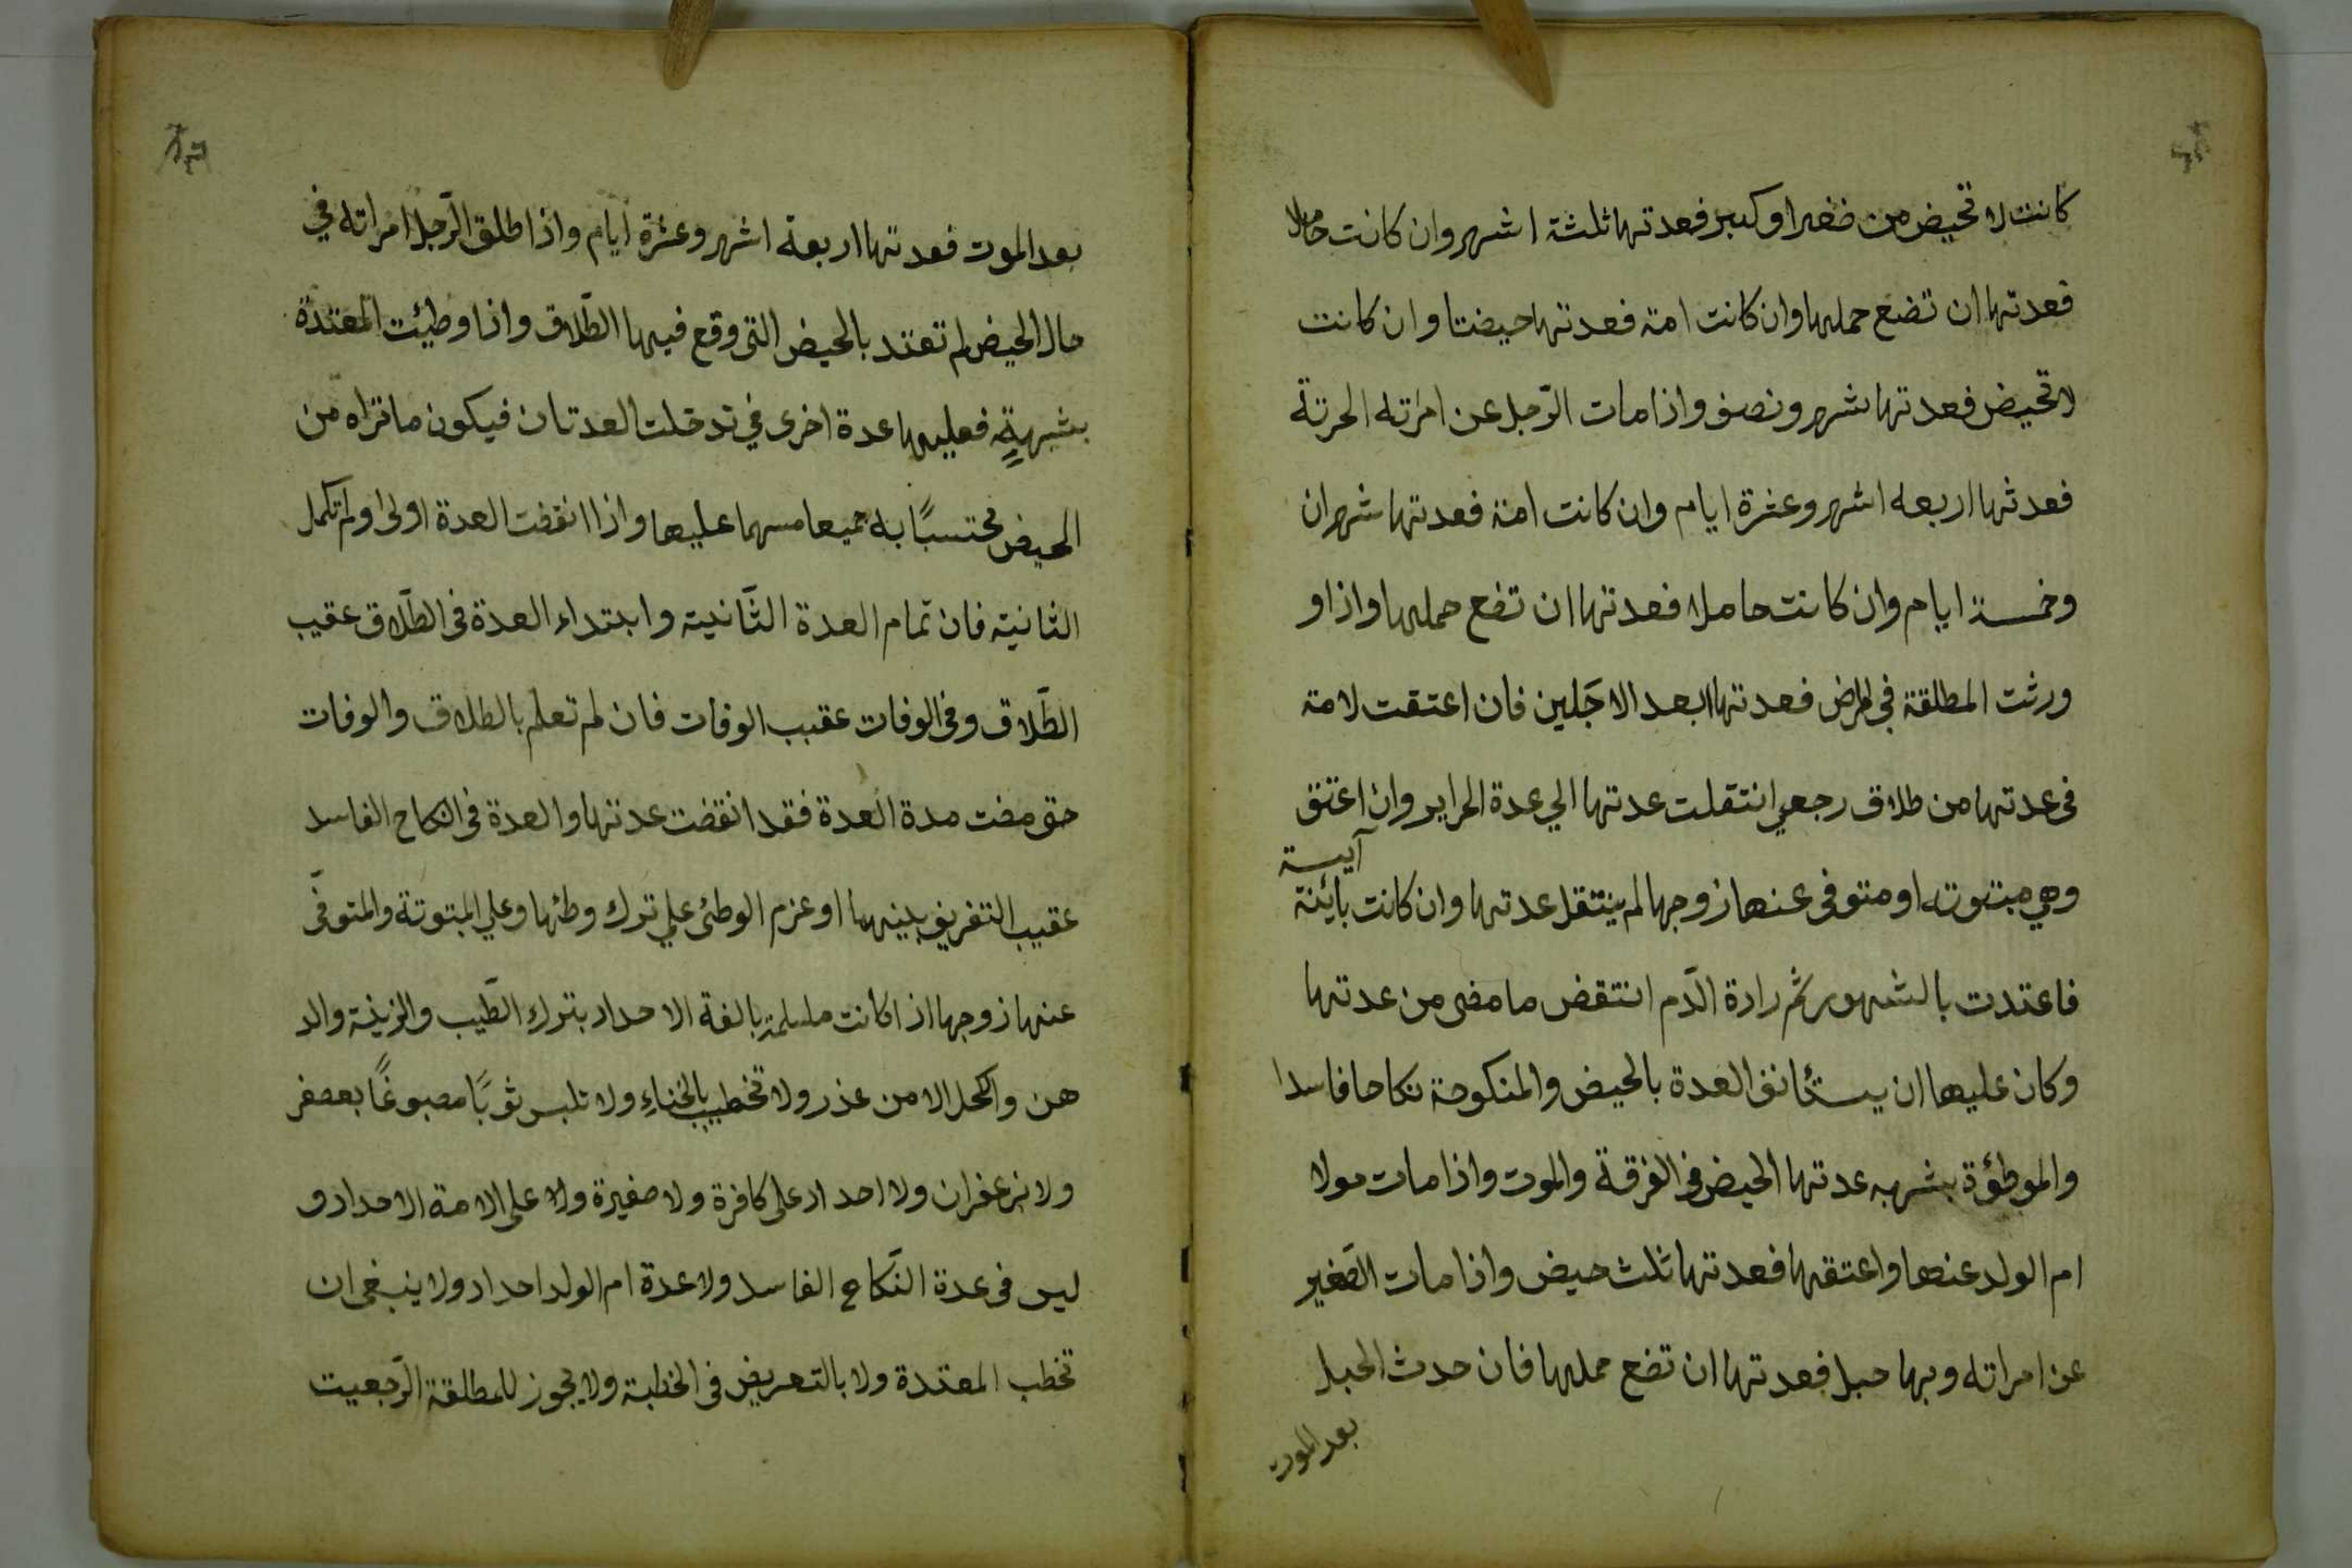 كانت لا تحيض من صغر او كبر فعدتها ثلثة اشهر وان كانت حاملا
فعدتها ان تضع حملها وان كانت امة فعدتها حيضتا وان كانت
لا تحيض فعدتها شهر ونصف واذا مات الرّجل عن امراته الحرتة
فعدتها اربعه اشهر وعشرة ايام وان كانت امة فعدتها شهران
وخمسة ايام وان كانت حاملا فعدتها ان تضع حملها واذا و
ورثت المطلقة في المرض فعدتها ابعد الاجَلين فان اعتقت لامة
فى عدتها من طلاق رجعي انتقلت عدتها الي عدة الحراير وان اعتق
آيسة
وهي مبتوته او متوفى عنها زوجها لم ينتقل عدتها وان كانت بائنة
فاعتدت بالشهور ثم رادة الدّم انتقض ما مضى من عدتها
وكان عليها ان يستئانف العدة بالحيض والمنكوحة نكاحا فاسدا
والموطؤة بشهبه عدتها الحيض فى الفرقة والموت واذا مات مولا
ام الولد عنها واعتقها فعدتها ثلث حيض واذا مات الصّغير
عن امراته وبها حبل فعدتها ان تضع حملها فان حدث الحبل
بعد الموت
بعد الموت فعدتها اربعة اشهر وعشرة ايام واذا طلق الرّجل امراته في
حال الحيض لم تعتد بالحيض التى وقع فيها الطّلاق واذا وطيئت المعتدّة
بشبهةٍ فعليها عدة اخرى في تدخلت العدتان فيكون ما تراه من
الحيض محتسبًا به جميعا مسهما عليها واذا انقضت العدة اولى ولم تكمل
الثانية فان تمام العدة الثّانية وابتداء العدة فى الطّلاق عقيب
الطّلاق وفى الوفات عقيب الوفات فان لم تعلم بالطلاق والوفات
حتى مضت مدة العدة فقد انقضت عدتها والعدة فى النكاح الفاسد
عقيب التفريق بينهما او عزم الوطئ علي ترك وطئها وعلي المبتوتة والمتوفّى
عنها زوجها اذا كانت مسلمة بالغة الاحداد بترك الطّيب والزينة والد
هن والكحل الا من عذر ولا تخطيب بالحناءِ ولا تلبس ثوبًا مصبوغًا بعصفر
ولا بزعفران ولا احداد على كافرة ولا صغيرة ولا على الامة الاحداد و
ليس فى عدة النّكاح الفاسد ولا عدة ام الولد احداد ولا ينبغى ان
تخطب المعتدة ولا بالتعريض فى الخطبة ولا يجوز للمطلقة الرّجعيت